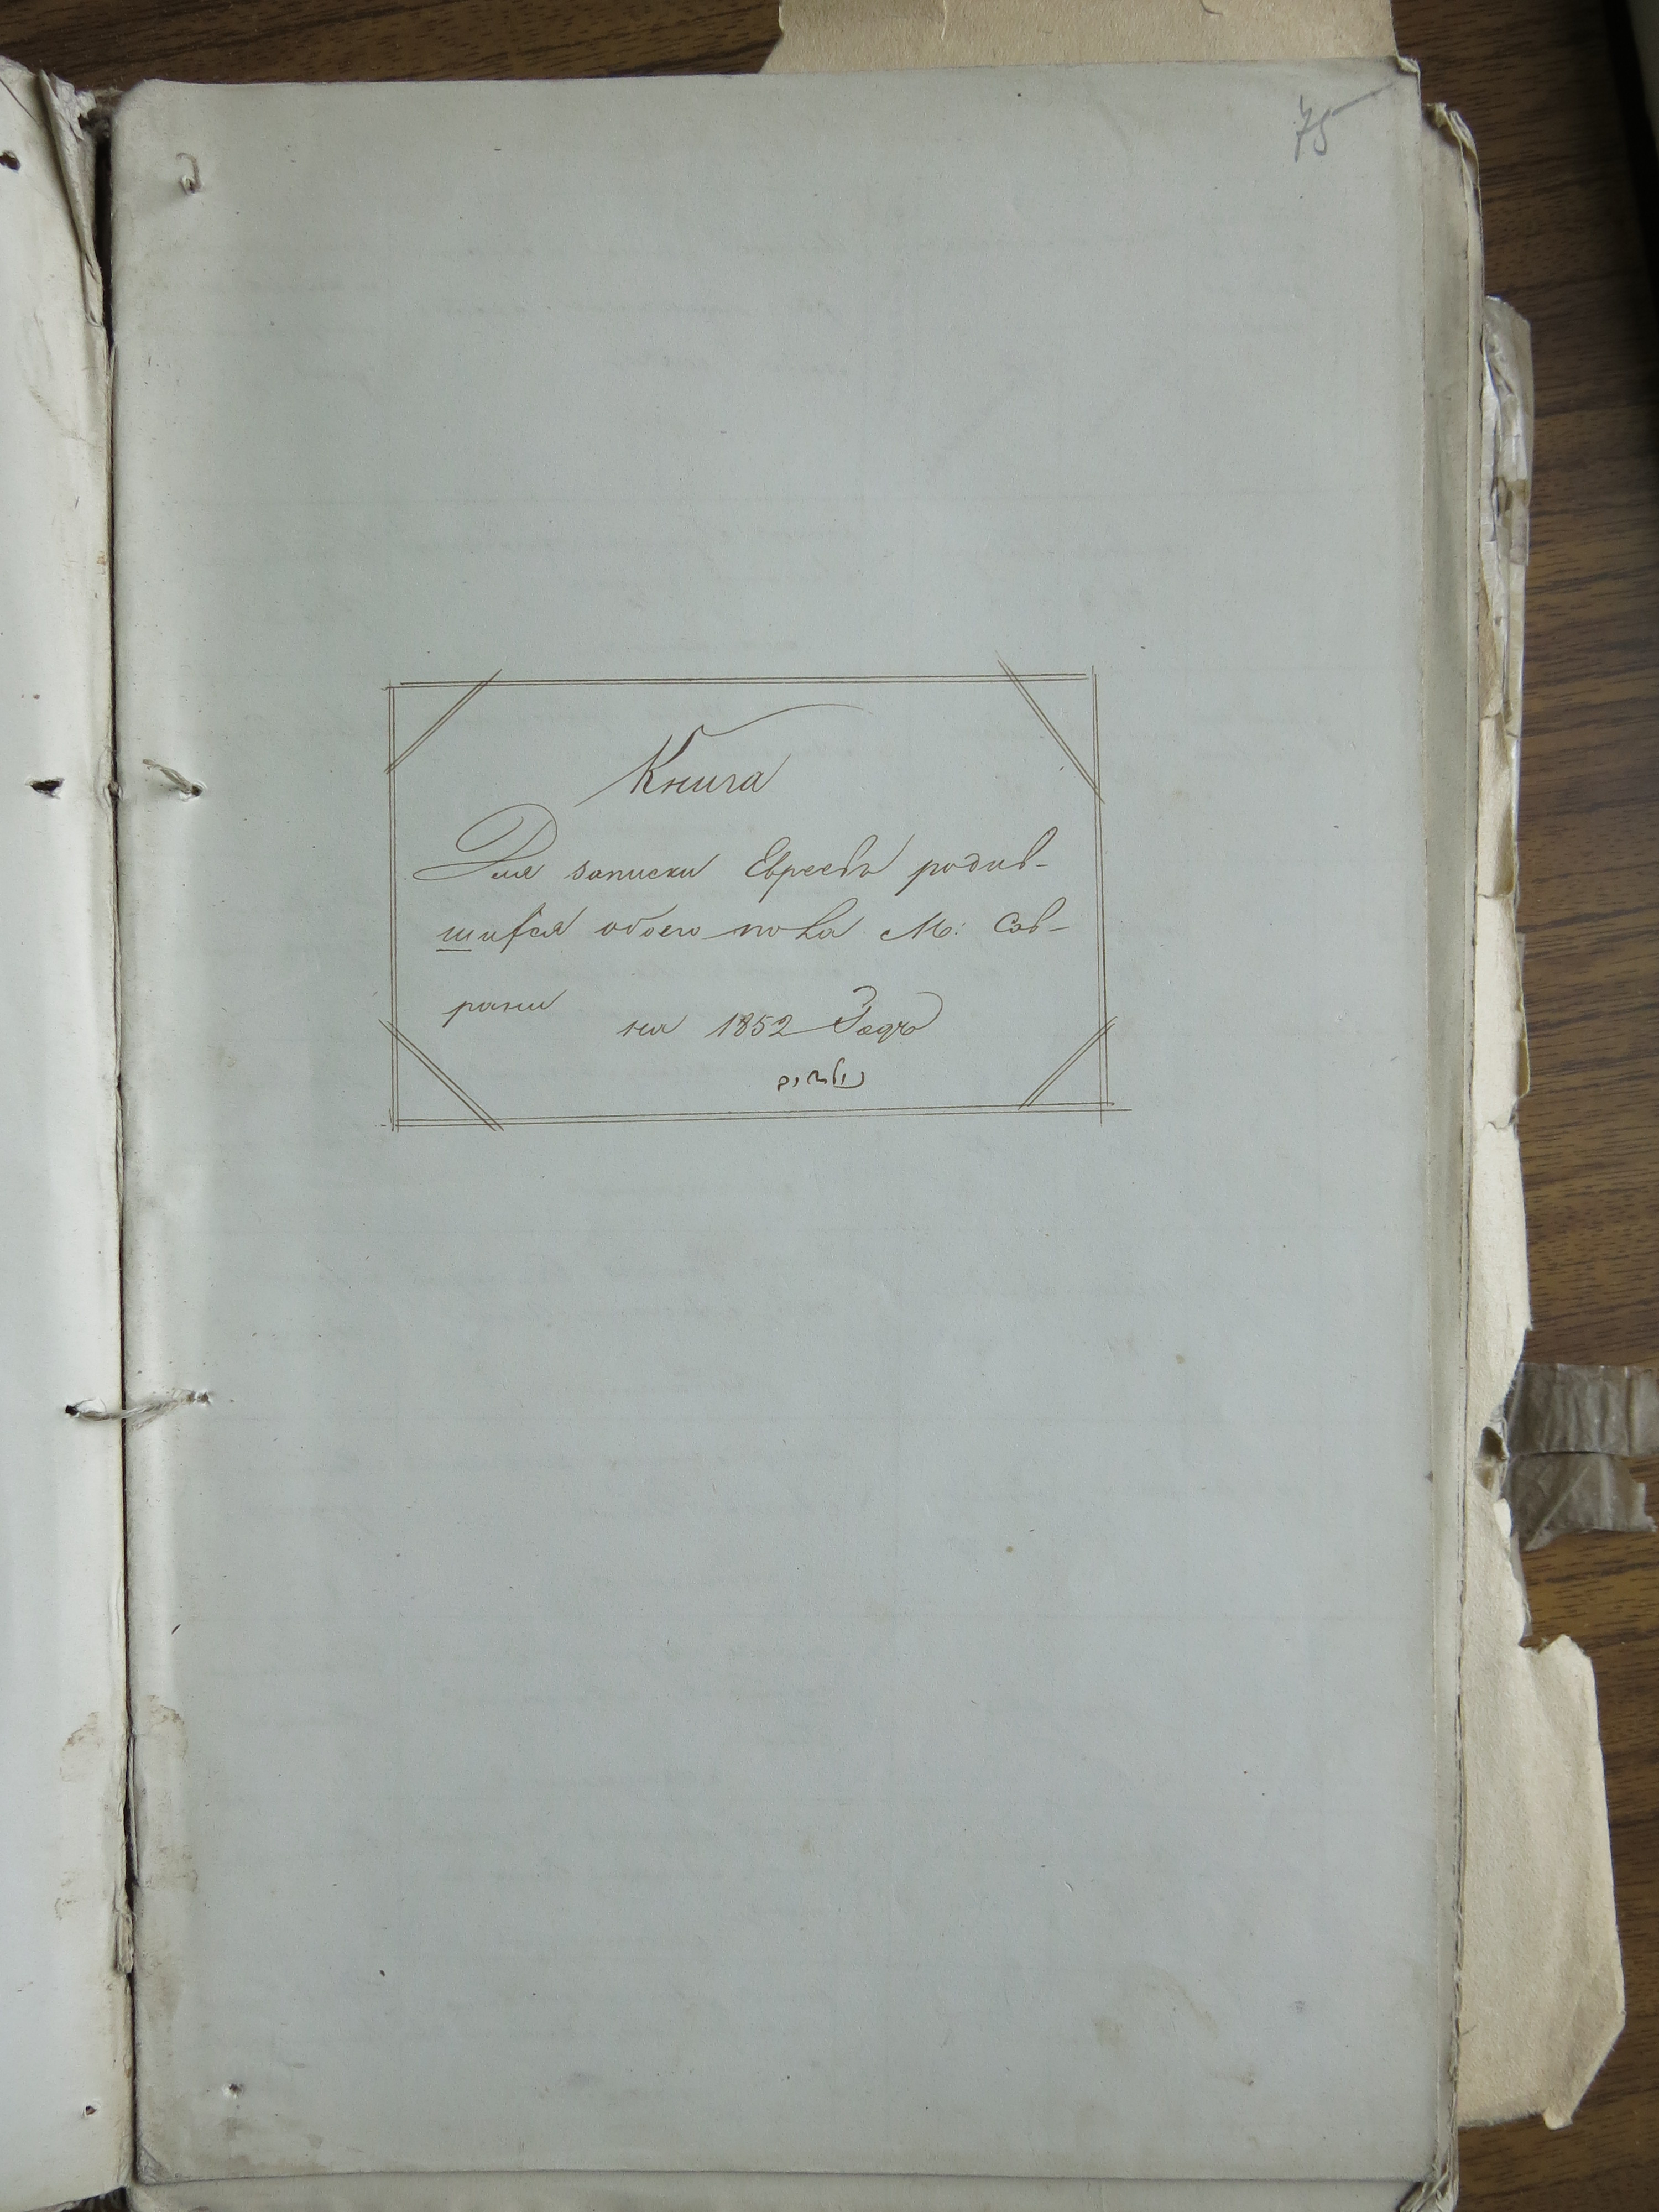 75
Книга
Для записки Евреевъ родив-
шихся обоего пола М: Сав-
рани
на 1852 Годъ
נולדים